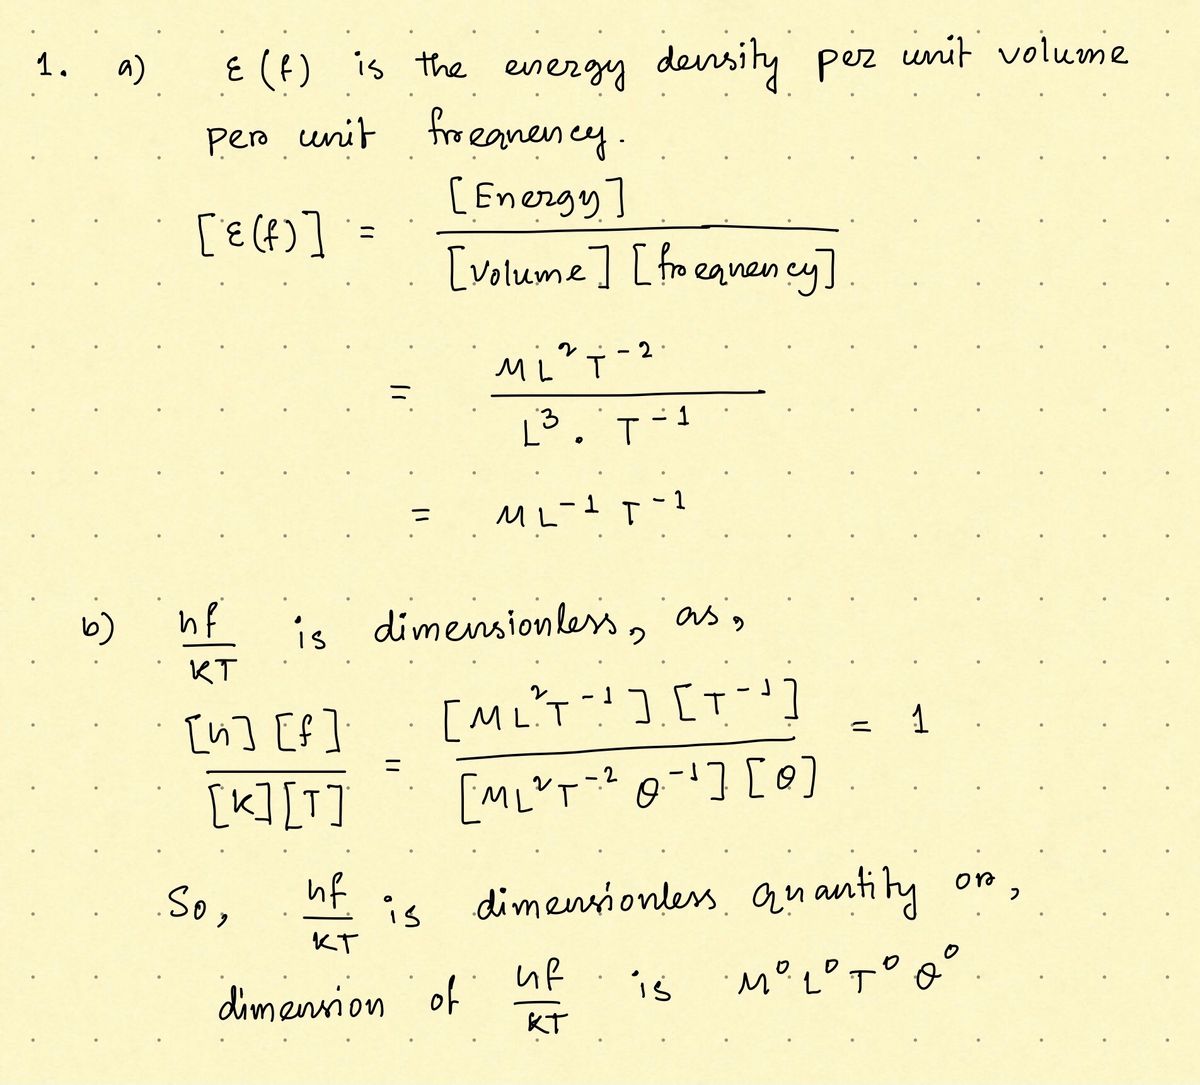 1. a) ε(f) is the energy density per unit volume
per unit frequency.
[ε(f)] = [Energy] / [Volume] [frequency]
= ML²T⁻² / L³ . T⁻¹
= ML⁻¹ T⁻¹
b) hf/KT is dimensionless, as,
[h] [f] / [K] [T] = [ML²T⁻¹] [T⁻¹] / [ML²T⁻² θ⁻¹] [θ] = 1
So, hf/KT is dimensionless quantity or,
dimension of hf/KT is M⁰L⁰T⁰θ⁰